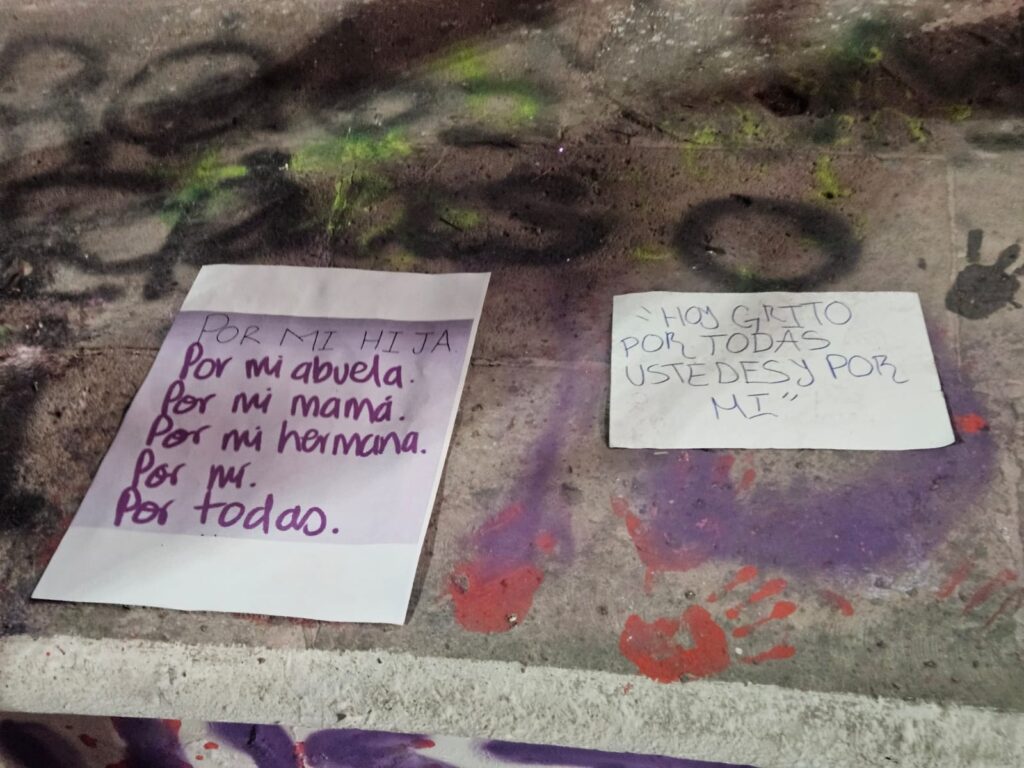 POR MI HIJA
Por mi abuela.
Por mi mamá.
Por mi hermana.
Por mí.
Por todas.
"HOY GRITO
POR TODAS
USTEDES Y POR
MI"